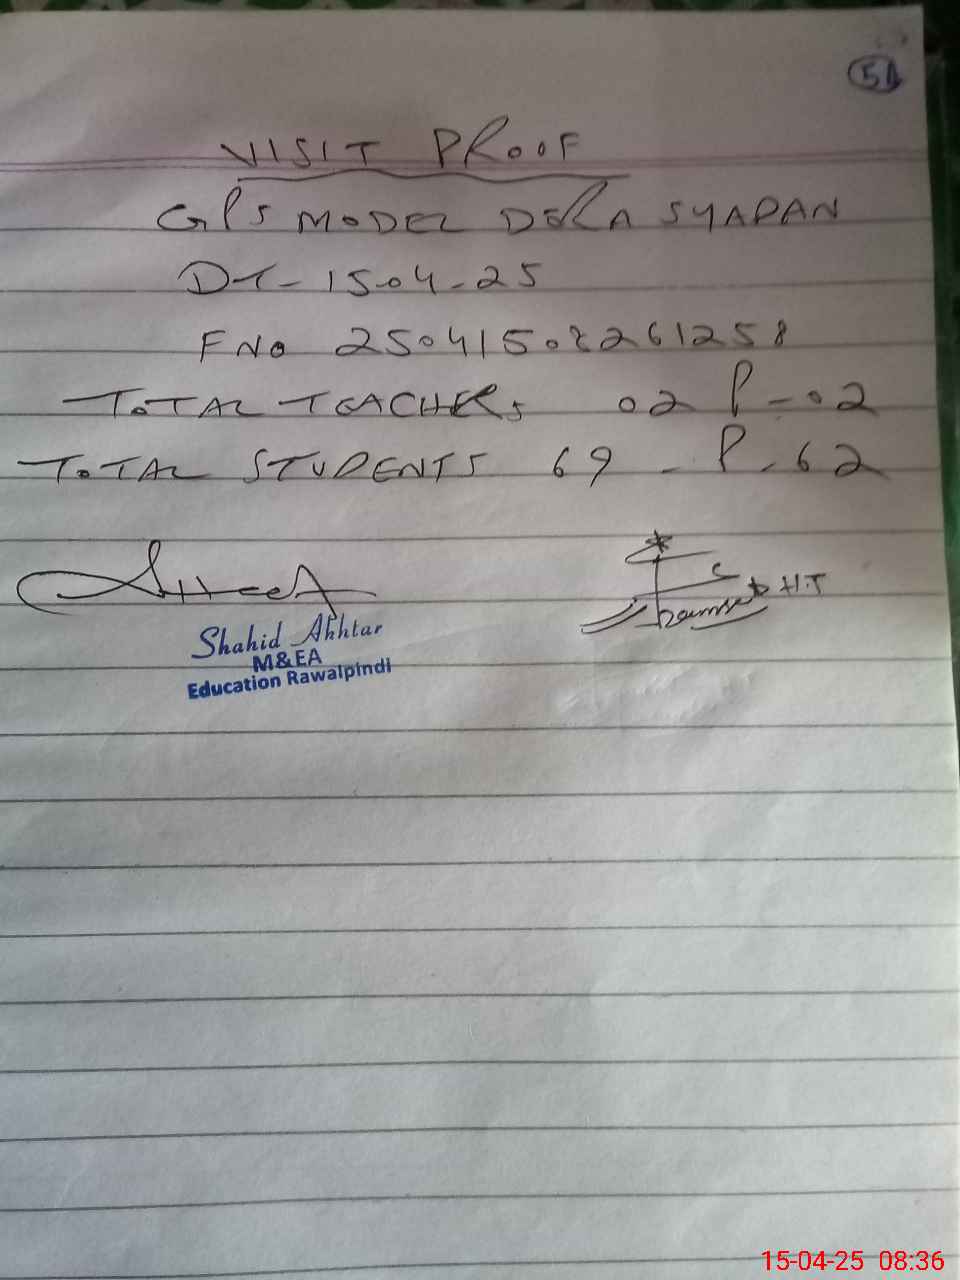 51
VISIT PROOF
GPS MODEL DERA SYADAN
DT- 15-04-25
F NO 250415082261258
TOTAL TEACHERS 02 P-02
TOTAL STUDENTS 69 - P-62
H.T
Shahid Akhtar
M&EA
Education Rawalpindi
15-04-25 08:36